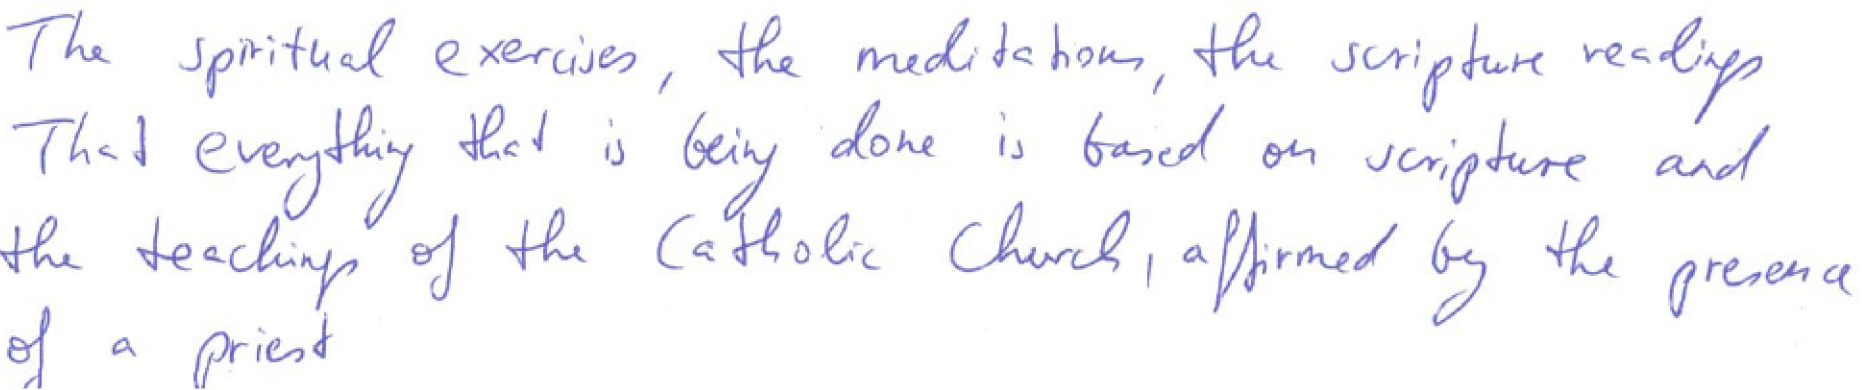 The spiritual exercises, the meditations, the scripture readings
That everything that is being done is based on scripture and
the teachings of the Catholic Church, affirmed by the presence
of a priest